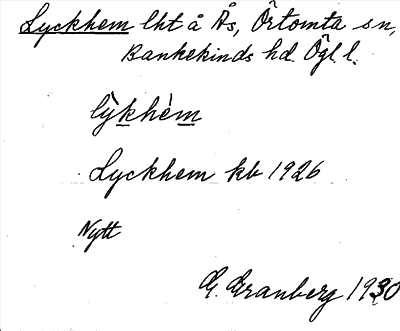 Lyckhem lht å Ås, Örtomta sn,
Bankekinds hd. Ögl. l.
lỳkhèm
Lyckhem kb 1926
Nytt
G. Granberg 1930